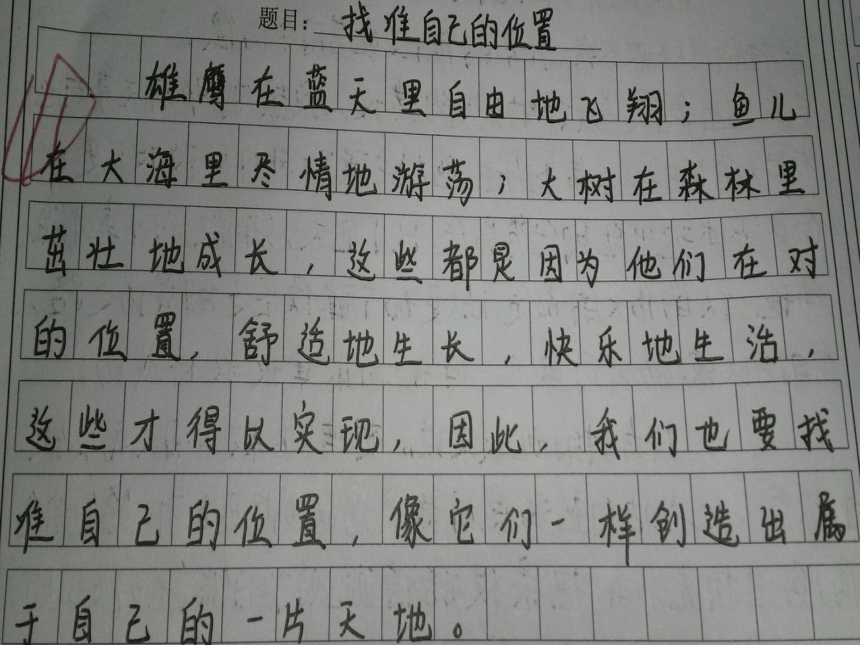 题目：找准自己的位置
雄鹰在蓝天里自由地飞翔；鱼儿
在大海里尽情地游荡；大树在森林里
茁壮地成长，这些都是因为他们在对
的位置，舒适地生长，快乐地生活，
这些才得以实现，因此，我们也要找
准自己的位置，像它们一样创造出属
于自己的一片天地。